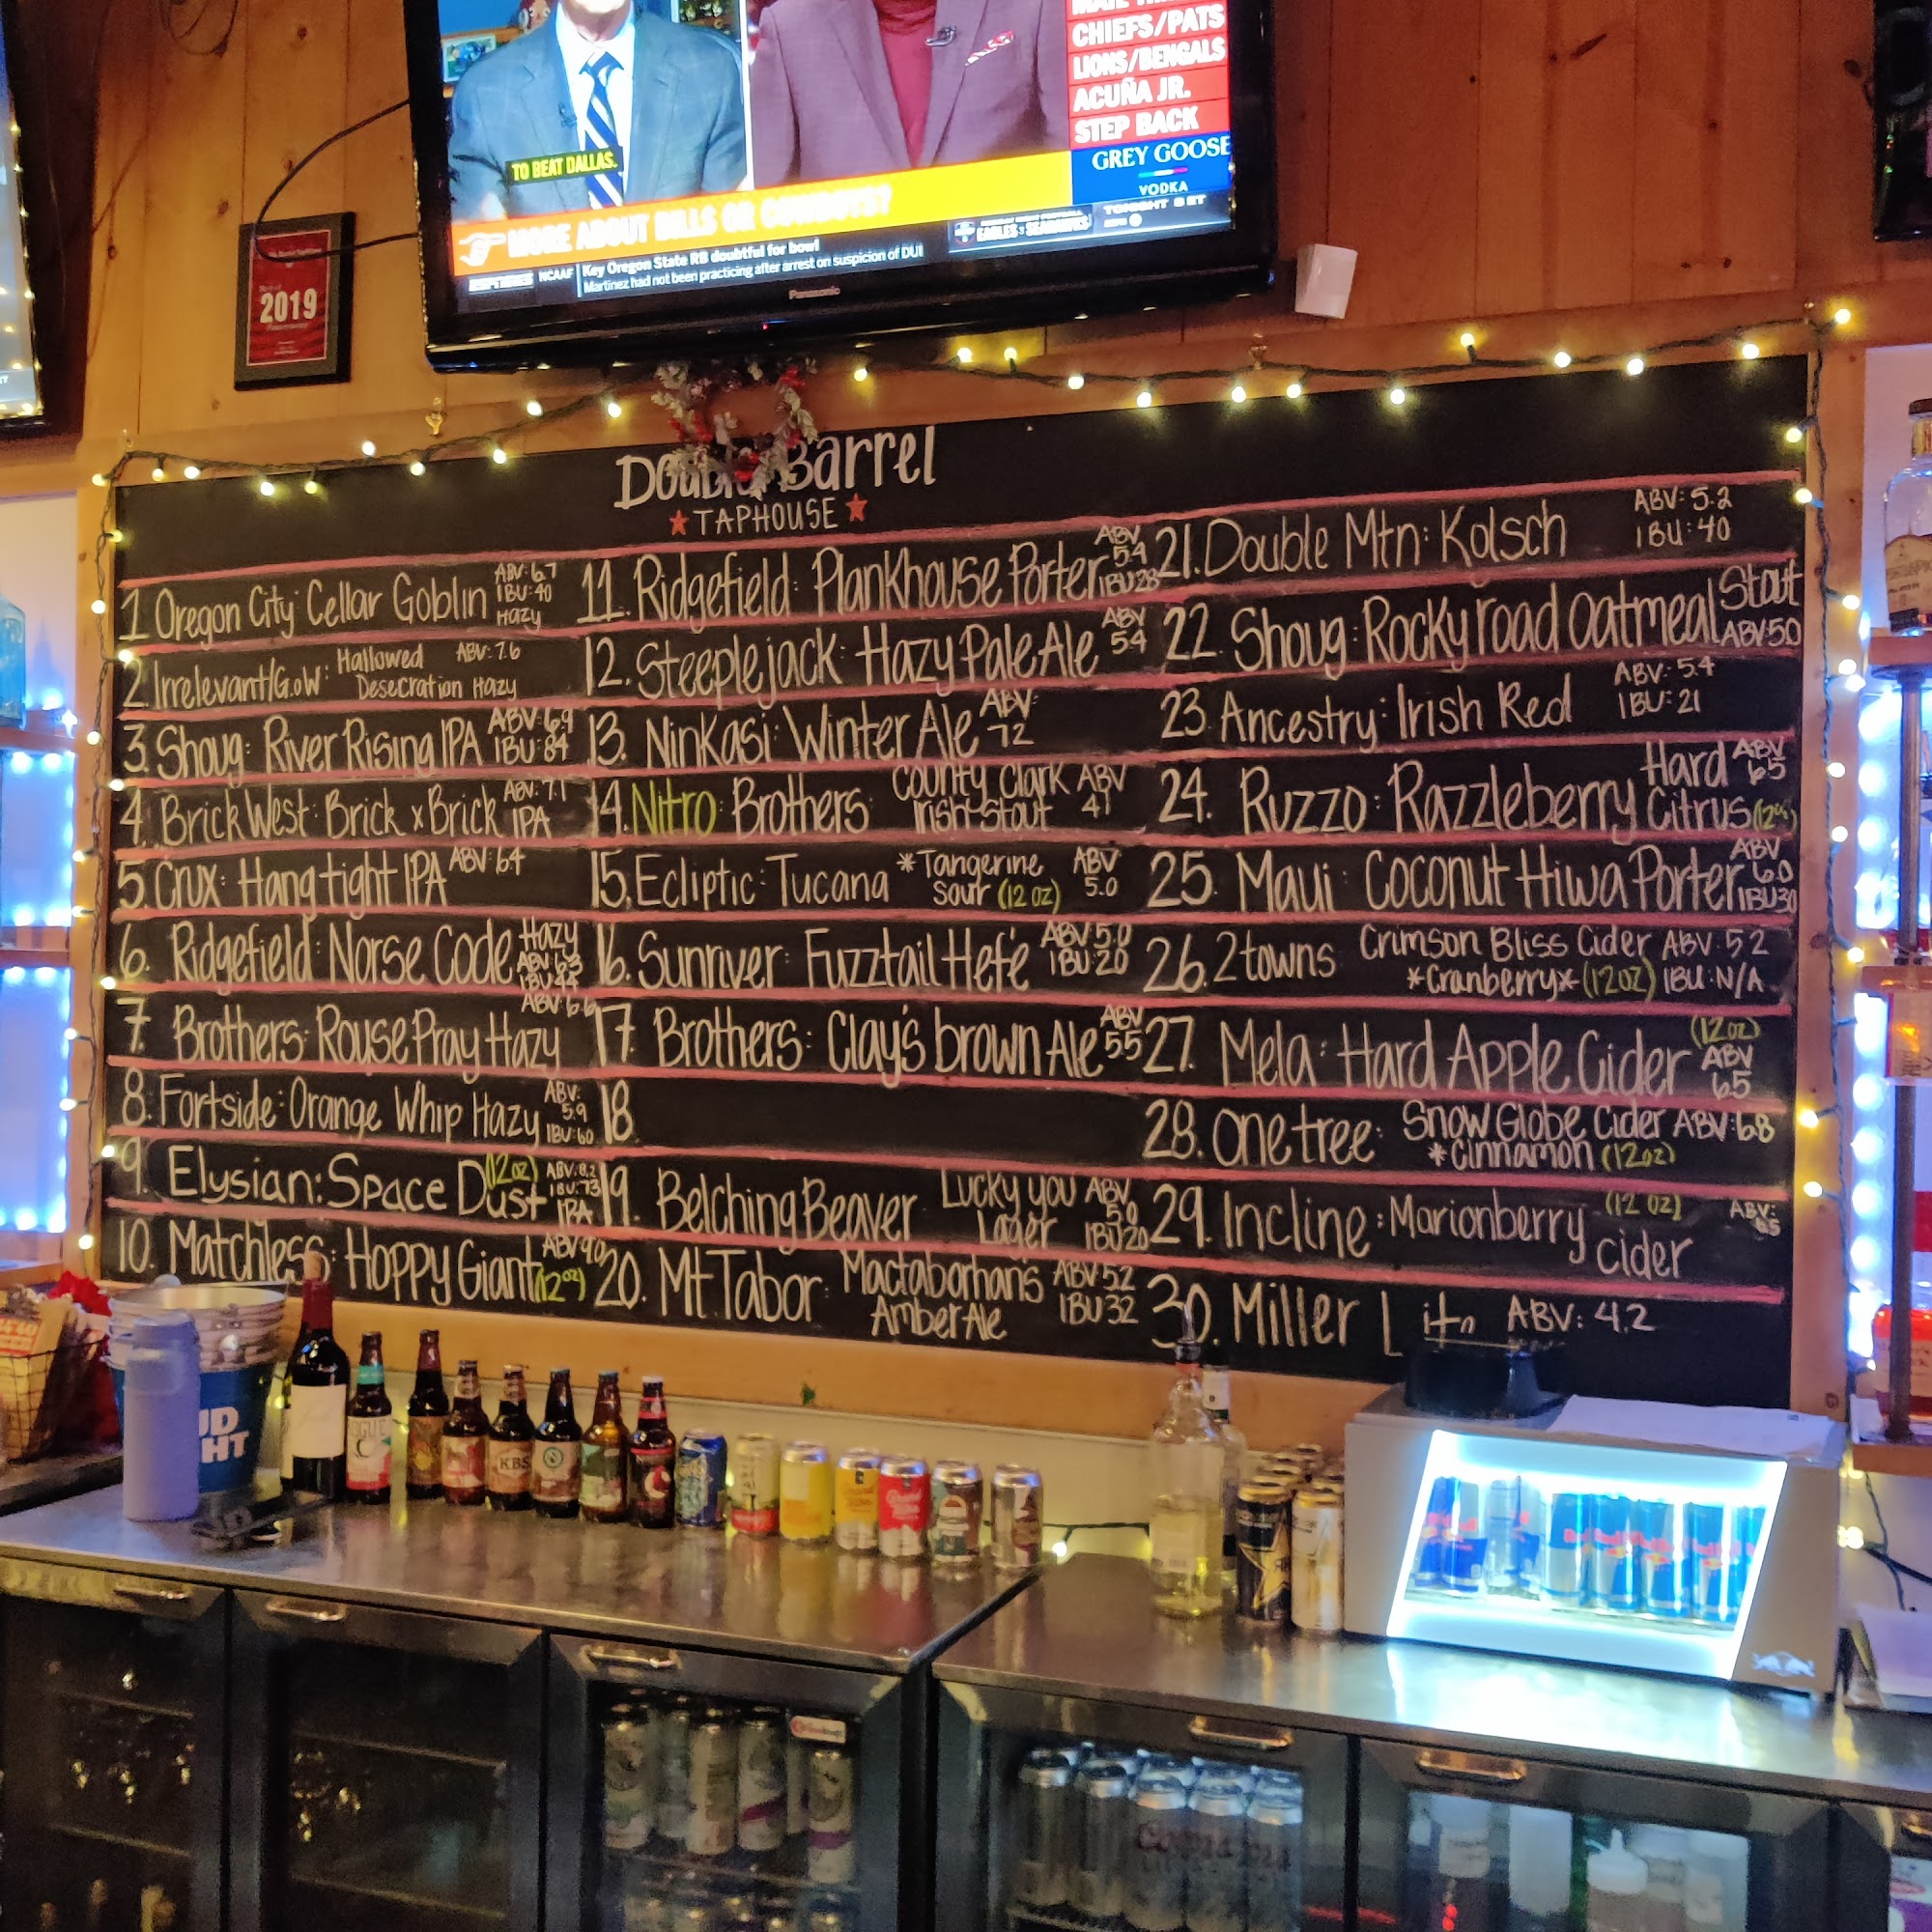 MAIL TIME
CHIEFS/PATS
LIONS/BENGALS
ACUÑA JR.
STEP BACK
GREY GOOSE
VODKA
TO BEAT DALLAS.
MORE ABOUT BILLS OR COWBOYS?
NCAAF Key Oregon State RB doubtful for bowl
Martinez had not been practicing after arrest on suspicion of DUI
EAGLES SEAHAWKS
TONIGHT 8 ET
Panasonic
2019
Double Barrel
TAPHOUSE
1 Oregon City: Cellar Goblin ABV: 6.7
IBU: 40
Hazy
2 Irrelevant/G.O.W: Hallowed ABV: 7.6
Desecration Hazy
3. Shoug: River Rising IPA ABV: 6.9
IBU: 84
4. Brick West: Brick x Brick ABV: 7.1
IPA
5. Crux: Hang tight IPA ABV: 6.4
6. Ridgefield: Norse Code Hazy
ABV: 6.3
IBU 44
7. Brothers: Rouse Pray Hazy ABV: 6.6
8. Fortside: Orange Whip Hazy ABV:
5.9
IBU: 60
9. Elysian: Space Dust (12 oz) ABV: 8.2
IBU: 73
IPA
10. Matchless: Hoppy Giant ABV 9.0
(12 oz)
11. Ridgefield: Plankhouse Porter ABV
5.4
IBU 28
12. Steeplejack: Hazy Pale Ale ABV
5.4
13. Ninkasi: Winter Ale ABV:
7.2
14. Nitro: Brothers: County Clark ABV
Irish Stout 4.1
15. Ecliptic: Tucana *Tangerine ABV
Sour (12 oz) 5.0
16. Sunriver: Fuzztail Hefe ABV 5.0
IBU: 20
17. Brothers: Clay's brown Ale ABV
5.5
18.
19. Belching Beaver Lucky you ABV
Lager 5.0
IBU 20
20. Mt. Tabor: Mactaborhan's ABV 5.2
Amber Ale IBU 32
21. Double Mtn: Kolsch ABV: 5.2
IBU: 40
22. Shoug: Rocky road Oatmeal Stout
ABV 5.0
23. Ancestry: Irish Red ABV: 5.4
IBU: 21
24. Ruzzo: Razzleberry Hard ABV
6.5
Citrus (12oz)
25. Maui: Coconut Hiwa Porter ABV
6.0
IBU 30
26. 2towns Crimson Bliss Cider ABV: 5.2
*Cranberry* (12oz) IBU: N/A
27. Mela: Hard Apple Cider (12oz)
ABV
6.5
28. One tree: Snow Globe Cider ABV: 6.8
*Cinnamon (12oz)
29. Incline: Marionberry (12 oz) ABV:
6.5
Cider
30. Miller Lite ABV: 4.2
KBS